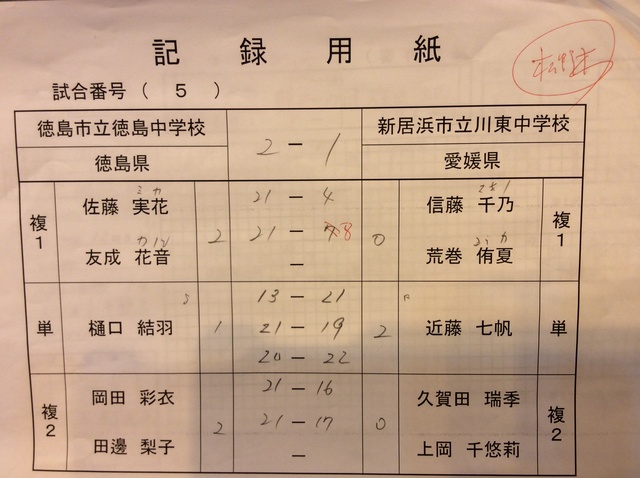 記録用紙
試合番号（ 5 ）
徳島市立徳島中学校 2 － 1 新居浜市立川東中学校
徳島県 愛媛県
複1 2 0 複1
ミカ
佐藤 実花 21 － 4 信藤 千乃
友成 花音 21 － 8 荒巻 侑夏
－
単 1 2 単
13 － 21
樋口 結羽 21 － 19 近藤 七帆
20 － 22
複2 2 0 複2
岡田 彩衣 21 － 16 久賀田 瑞季
21 － 17
田邊 梨子 － 上岡 千悠莉